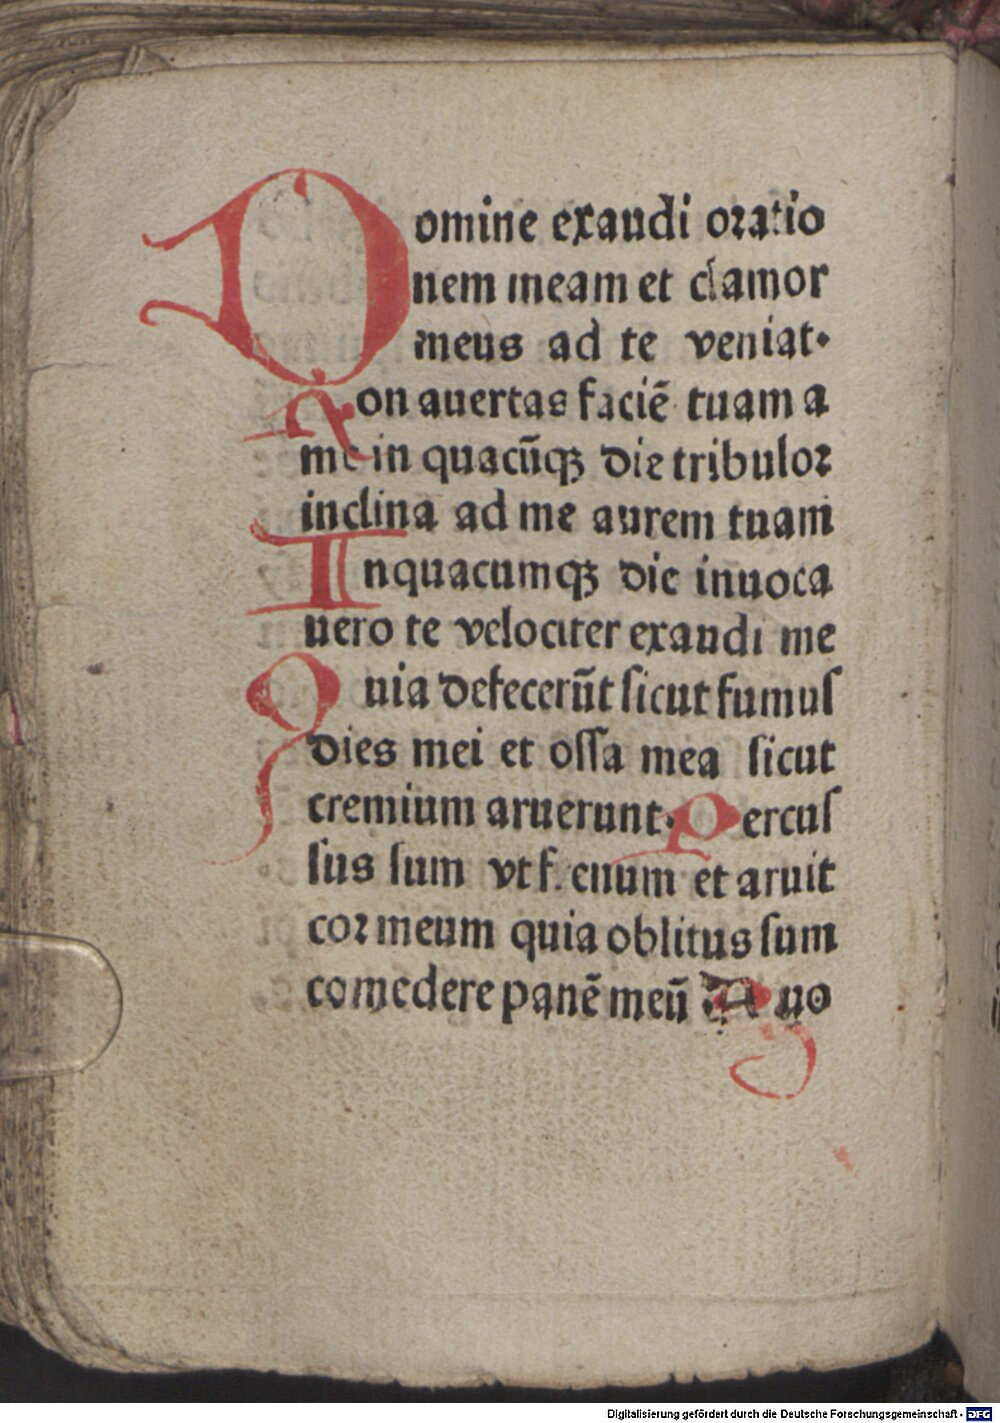 Domine exaudi oratio
nem meam et clamor
meus ad te veniat·
Non auertas faciē tuam a
me in quacūqꝫ die tribulor
inclina ad me aurem tuam
In quacumqꝫ die inuoca
uero te velociter exaudi me
Quia defecerūt sicut fumus
dies mei et ossa mea sicut
cremium aruerunt· Percus
sus sum vt fenum et aruit
cor meum quia oblitus sum
comedere panē meū A uo
Digitalisierung gefördert durch die Deutsche Forschungsgemeinschaft - DFG